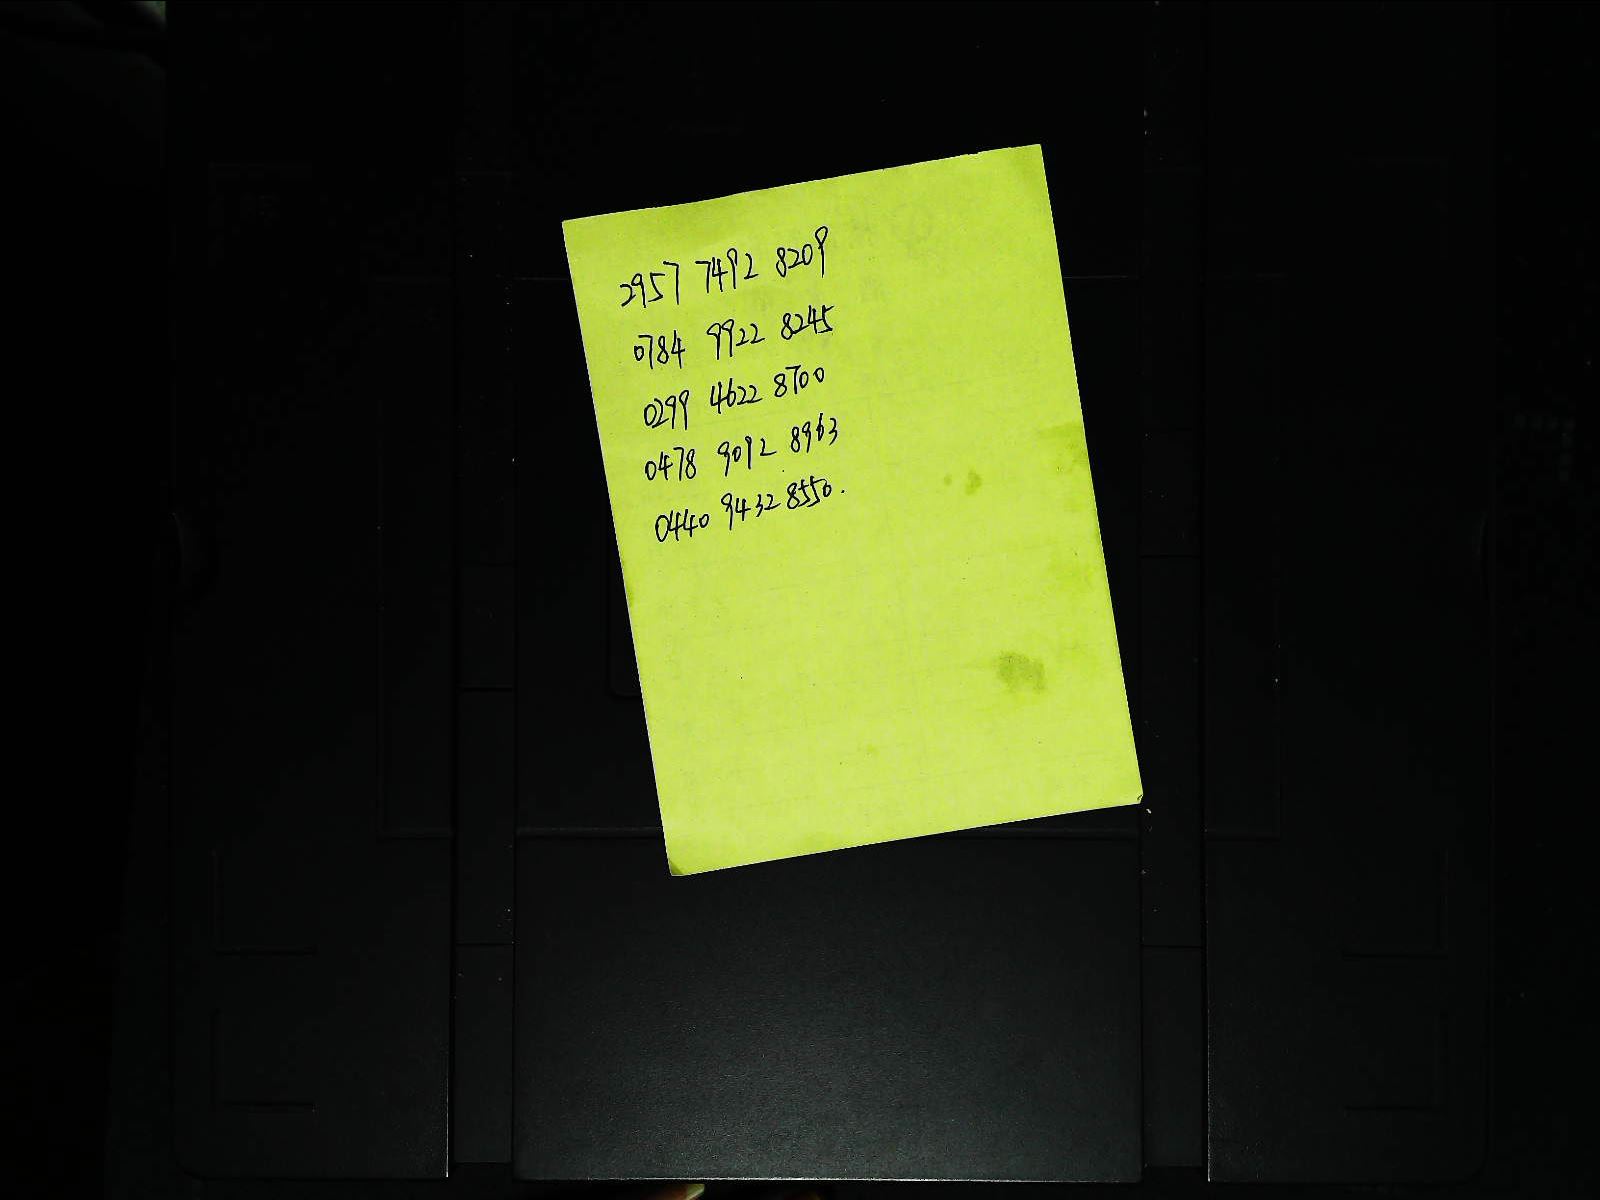 2957 7492 8209
0784 9922 8245
0299 4622 8700
0478 9092 8963
0440 9432 8550.